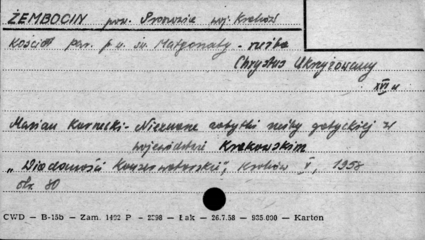 ŻEMBOCIN pow. Proszowice woj. Kraków
Kościół par. p.w. św. Małgorzaty - rzeźba
Chrystus Ukrzyżowany
XVI w
Marian Kornecki - Nieznane zabytki rzeźby gotyckiej w
województwie Krakowskim
"Wiadomości Konserwatorskie", Kraków I, 1958
str. 80
CWD — B-15b — Zam. 1492 P — 2598 — Łak — 26.7.58 — 935.000 — Karton